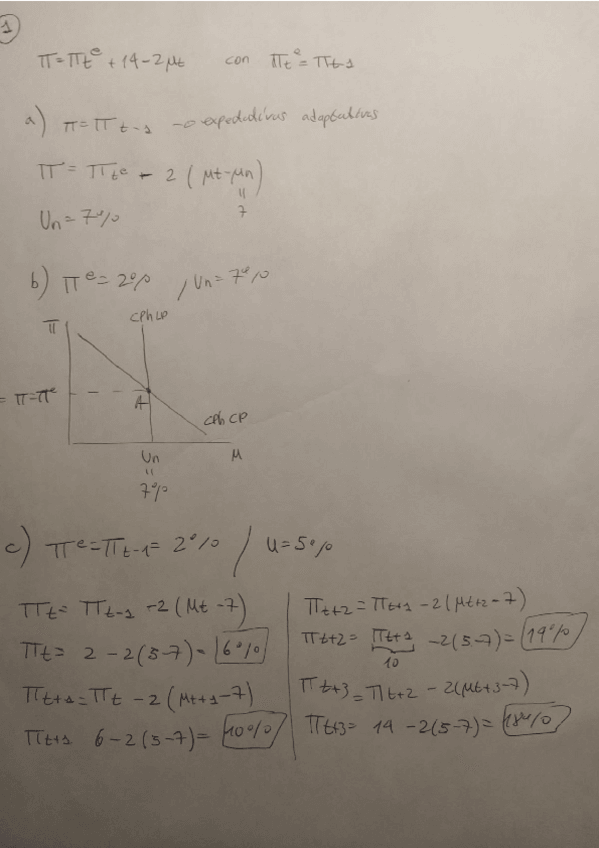 1
π = πtᵉ + 14 - 2μt con πtᵉ = πt-1
a) π = πt-1 → expectativas adaptativas
π = πtᵉ - 2 (μt - μn)
"
7
Un = 7%
b) πᵉ = 2% / Un = 7%
π
CPh LP
= π = πᵉ
A
CPh CP
Un
μ
"
7%
c) πᵉ = πt-1 = 2% / u = 5%
πt = πt-1 - 2 (μt - 7)
πt = 2 - 2 (5 - 7) = 6%
πt+1 = πt - 2 (μt+1 - 7)
πt+1 6 - 2 (5 - 7) = 10%
πt+2 = πt+1 - 2 (μt+2 - 7)
πt+2 = πt+1 - 2 (5 - 7) = 14%
10
πt+3 = πt+2 - 2 (μt+3 - 7)
πt+3 = 14 - 2 (5 - 7) = 18%